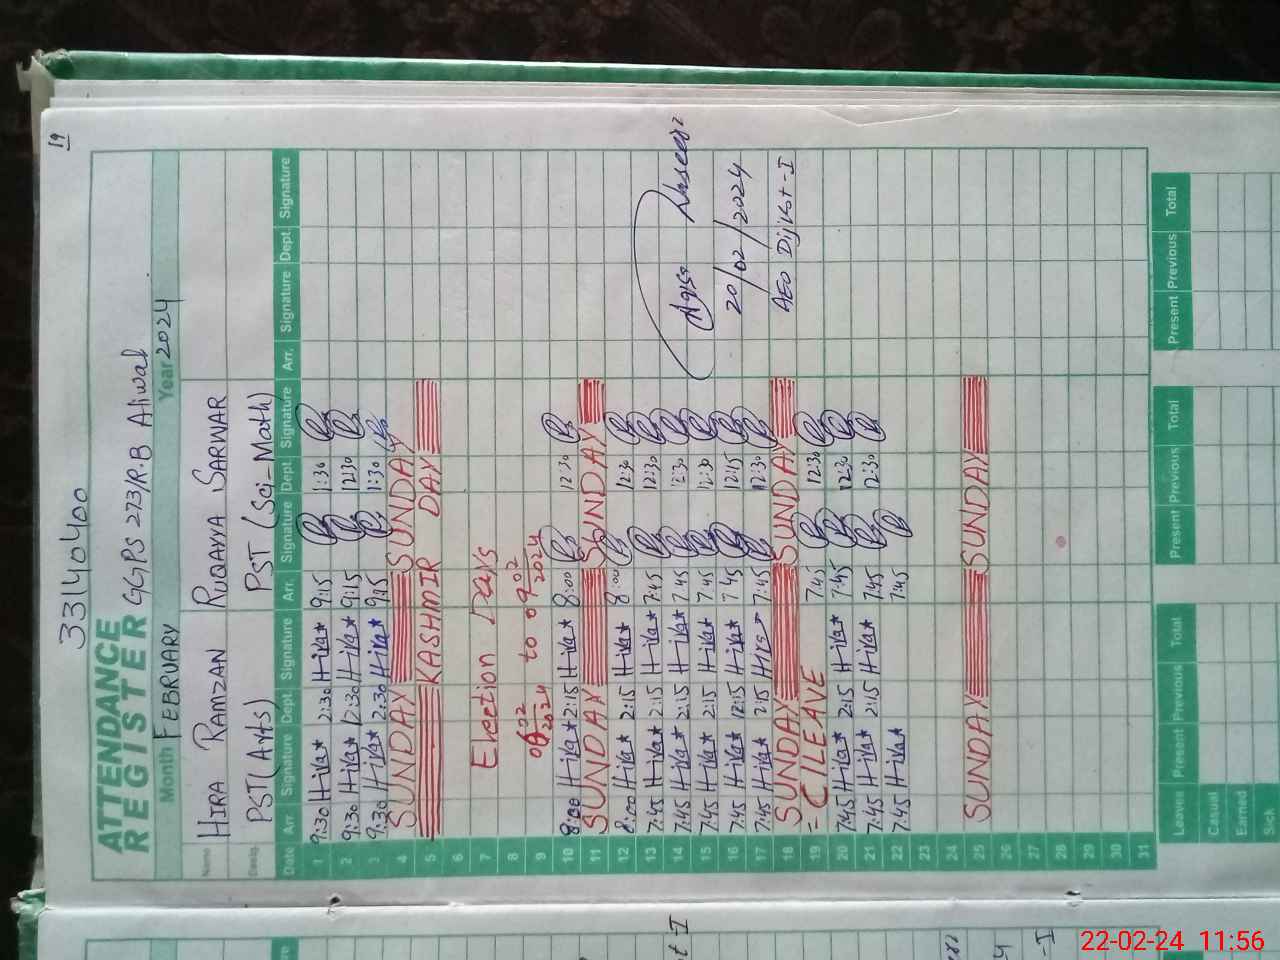 19
33140400
ATTENDANCE
REGISTER GGPS 273/R.B Aliwal
Month FEBRUARY Year 2024
Name HIRA RAMZAN RUQAYYA SARWAR
Desig. PST(Arts) PST (Sci-Math)
Date Arr. Signature Dept. Signature Arr. Signature Dept. Signature Arr. Signature Dept. Signature
1 9:30 Hira* 2:30 Hira* 9:15 1:30
2 9:30 Hira* 12:30 Hira* 9:15 12:30
3 9:30 Hira* 2:30 Hira* 9:15 1:30
4 SUNDAY SUNDAY
5 KASHMIR DAY
6
7 Election Days
8 06-02-2024 to 09-02-2024
9
10 8:00 Hira* 2:15 Hira* 8:00 12:30
11 SUNDAY SUNDAY
12 8:00 Hira* 2:15 Hira* 8:00 12:30
13 7:45 Hira* 2:15 Hira* 7:45 12:30
14 7:45 Hira* 2:15 Hira* 7:45 12:30
15 7:45 Hira* 2:15 Hira* 7:45 12:30
16 7:45 Hira* 12:15 Hira* 7:45 12:15
17 7:45 Hira* 2:15 Hira* 7:45 12:30
18 SUNDAY SUNDAY
19 - C/LEAVE 7:45 12:30
20 7:45 Hira* 2:15 Hira* 7:45 12:30
21 7:45 Hira* 2:15 Hira* 7:45 12:30
22 7:45 Hira* 7:45
23
24
25 SUNDAY SUNDAY
26
27
28
29
30
31
20/02/2024
AEO Dijkot-I
Leaves Present Previous Total Present Previous Total Present Previous Total
Casual
Earned
Sick
22-02-24 11:56